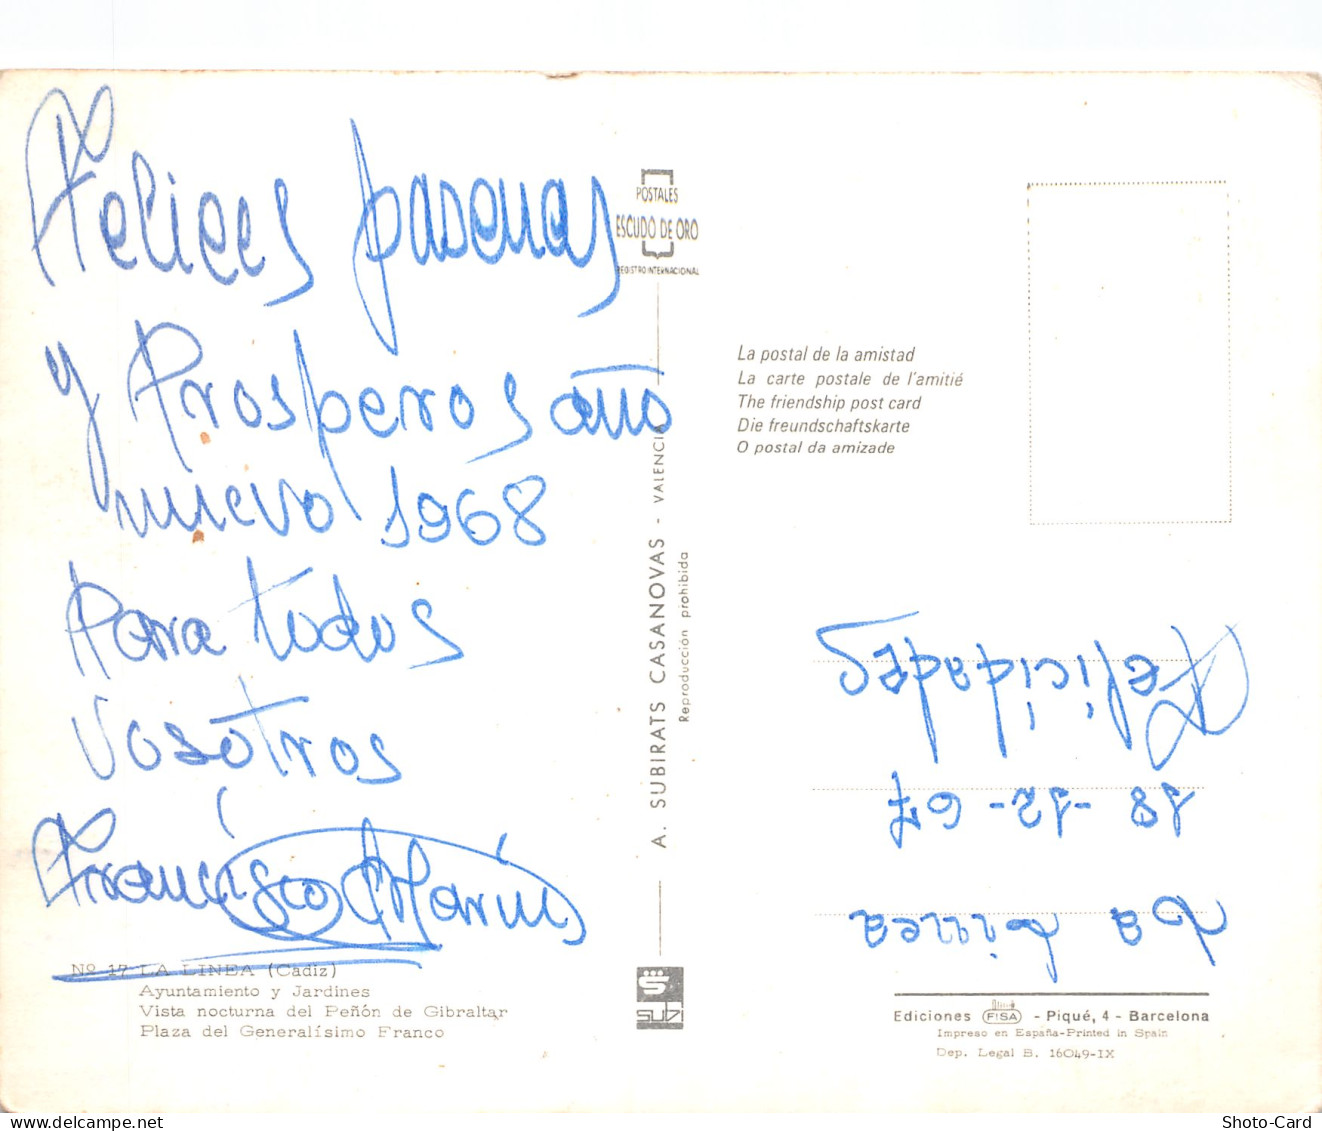 Felices pascuas
y Prosperos año
nuevo 1968
Para todos
vosotros
Francisco Marin
Nº 17 LA LINEA (Cádiz)
Ayuntamiento y Jardines
Vista nocturna del Peñón de Gibraltar
Plaza del Generalísimo Franco
POSTALES
ESCUDO DE ORO
REGISTRO INTERNACIONAL
A. SUBIRATS CASANOVAS - VALENCIA
Reproducción prohibida
subi
La postal de la amistad
La carte postale de l'amitié
The friendship post card
Die freundschaftskarte
O postal da amizade
La Linea
18-12-67
Felicidades
Ediciones FISA - Piqué, 4 - Barcelona
Impreso en España-Printed in Spain
Dep. Legal B. 16049-IX
Shoto-Card